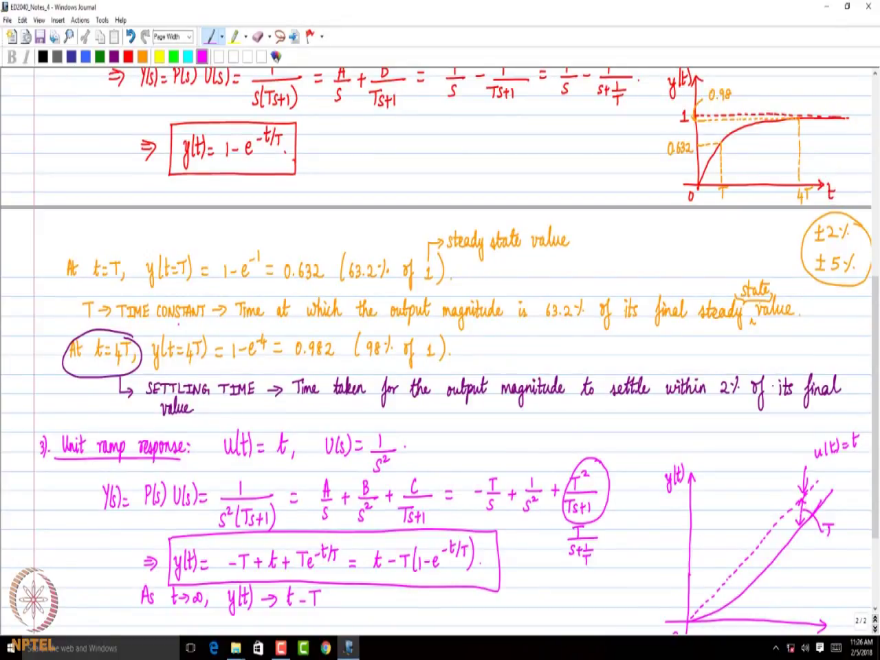 ED2040_Notes_4 - Windows Journal
File Edit View Insert Actions Tools Help
Page Width
B I
⇒ Y(s)= P(s) U(s)= 1/(s(Ts+1)) = A/s + B/(Ts+1) = 1/s - T/(Ts+1) = 1/s - 1/(s+1/T).
⇒ y(t)= 1-e^(-t/T).
y(t)
0.98
1
0.632
0 T 4T t
→steady state value
±2%
±5%
At t=T, y(t=T) = 1-e^-1 = 0.632 (63.2% of 1).
T → TIME CONSTANT → Time at which the output magnitude is 63.2% of its final steady state value.
At t=4T, y(t=4T) = 1-e^-4 = 0.982 (98% of 1).
↳ SETTLING TIME → Time taken for the output magnitude to settle within 2% of its final value
3). Unit ramp response: u(t)= t, U(s)= 1/s^2.
Y(s)= P(s) U(s)= 1/(s^2(Ts+1)) = A/s + B/s^2 + C/(Ts+1) = -T/s + 1/s^2 + T^2/(Ts+1)
T/(s+1/T)
⇒ y(t)= -T+t+Te^(-t/T) = t-T(1-e^(-t/T)).
As t→∞, y(t) → t-T
y(t)
u(t)=t
T
NPTEL
2 / 2
11:26 AM
2/5/2018